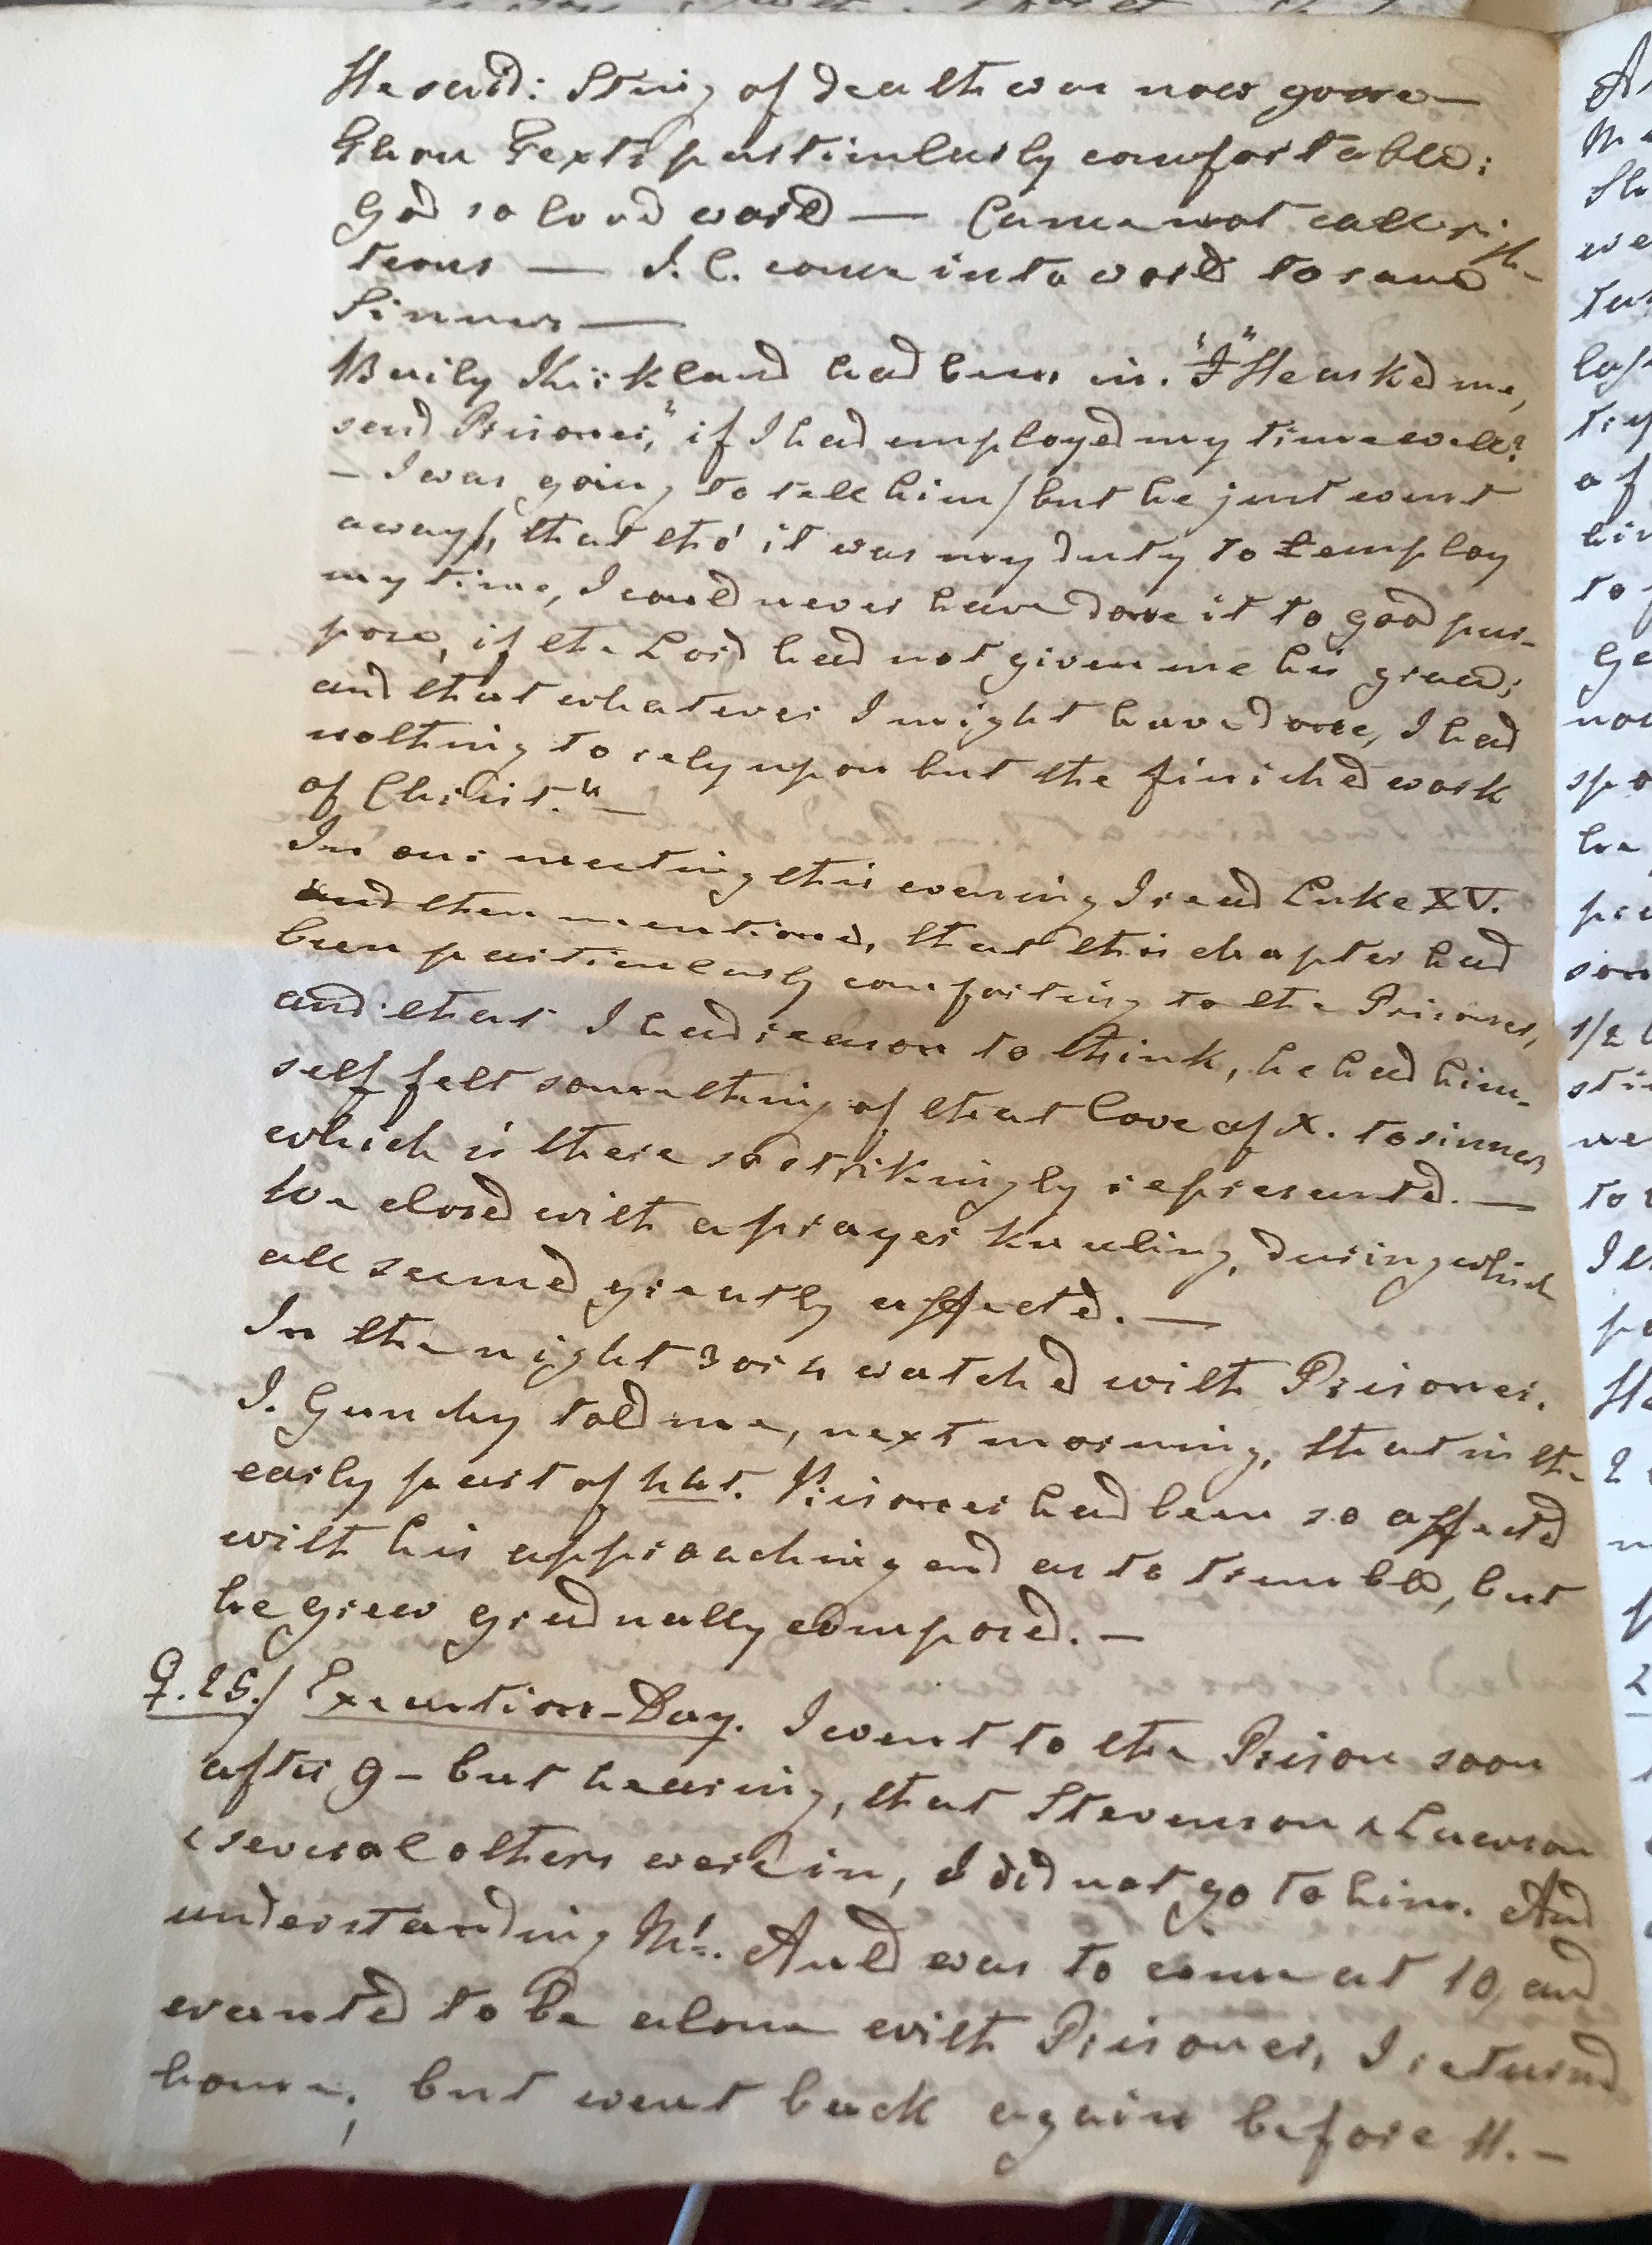 He said: Sting of death was now gone —
Three Texts particularly comfortable:
God so loved world — Came not call righ-
teous — J. C. came into world to save
Sinners —
Baily Kirkland had been in. "I "He asked me,
said Prisoner," if I had employed my time well?
– I was going to tell him / but he just went
away/, that tho' it was my duty to employ
my time, I could never have done it to good pur-
pose, if the Lord had not given me his grace;
and that whatever I might have done, I had
nothing to rely upon but the finished work
of Christ." —
In our meeting this evening I read Luke XV.
and then mentioned, that this chapter had
been particularly comforting to the Prisoner,
and that I had reason to think, he had him-
self felt something of that love of X. to sinners
which is there so strikingly represented. —
We closed with a prayer kneeling, during which
all seemed greatly affected. —
In the night 3 or 4 watched with Prisoner.
J. Gundry told me, next morning, that in the
early part of Prisoner had been so affected
with his approaching end as to tremble, but
he grew gradually composed. —
♀. 25./ Execution-Day. I went to the Prison soon
after 9 – but hearing, that Stevenson & Lawson
& several others were in, I did not go to him. And
understanding Mr. Auld was to come at 10, and
wanted to be alone with Prisoner, I returned
home; but went back again before 11. —